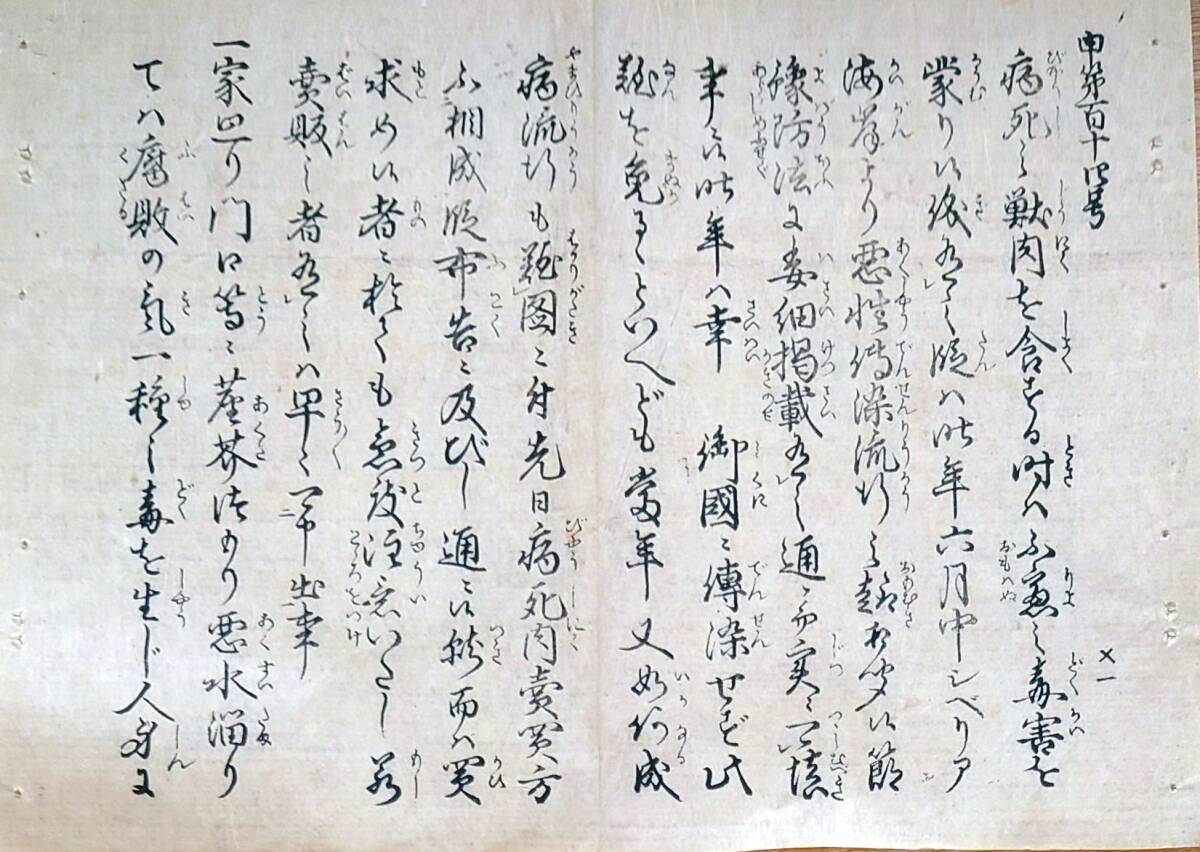 申第百十四号
病死之獣肉を食する時ハ不慮之毒害を
蒙り候儀有之既ハ昨年六月中シベリア
海岸より悪性伝染流行之趣相聞候節
予防法は委細掲載有之通ニ而実ニ可慎
事ニ候昨年ハ幸 御國ニ傳染せず此
難を免るゝといへども当年又如何成
病流行も難図ニ付先日病死肉売買方
不相成段布告ニ及びし通ニ候就而ハ買
求め候者ニ於ても急度注意いたし若
売販之者有之ハ早々可申出事
一家廻り門口等ニ塵芥溜り悪水溜り
てハ腐敗の気一種之毒を生じ人身ま